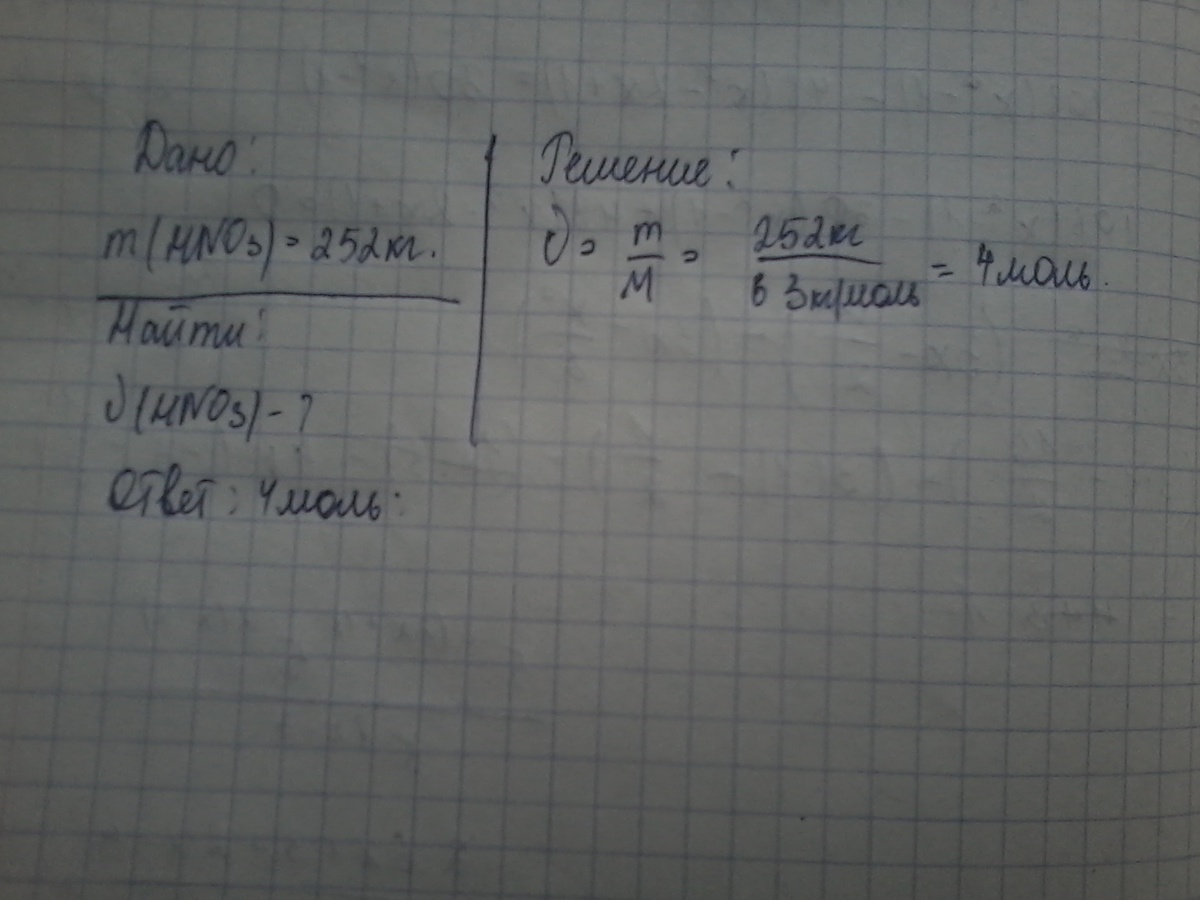 Дано:
m(HNO3) = 252кг.
Найти:
ν(HNO3) - ?
Ответ: 4моль.
Решение:
ν = m/M = 252кг/63кг/моль = 4моль.